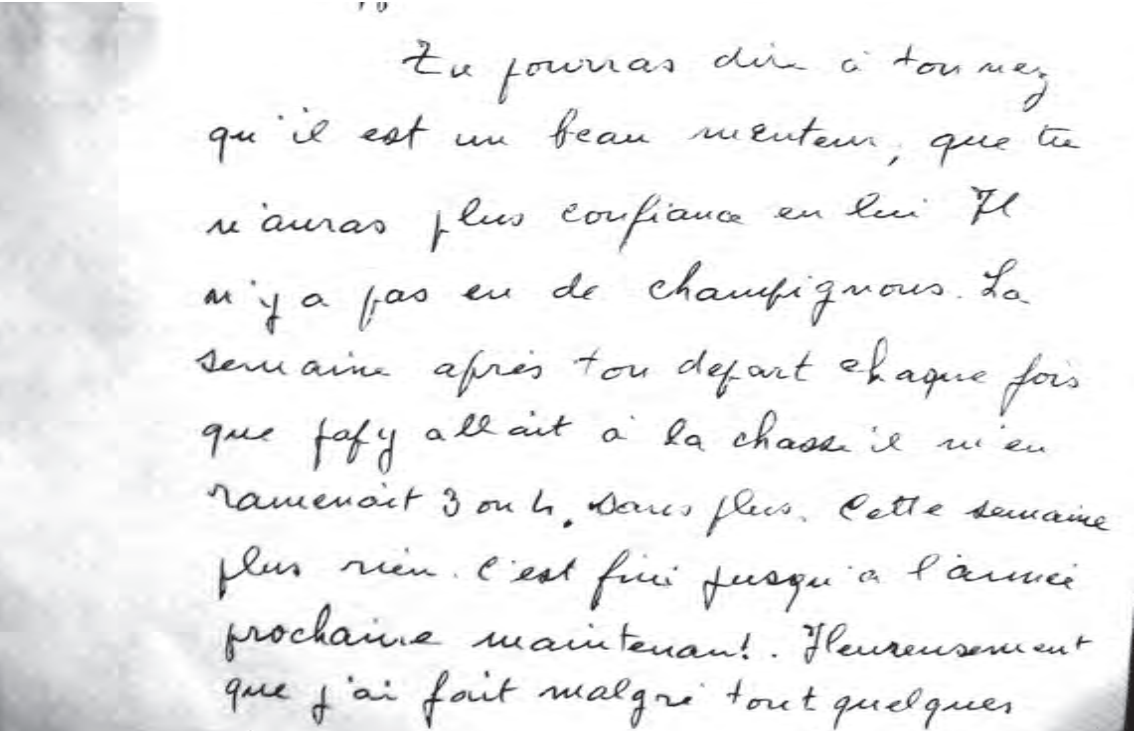 Tu pourras dire à ton nez
qu'il est un beau menteur, que tu
n'auras plus confiance en lui Il
n'y a pas eu de champignons. La
semaine après ton depart chaque fois
que papy allait à la chasse il m'en
ramenait 3 ou 4. sans plus. Cette semaine
plus rien. C'est fini jusqu'a l'année
prochaine maintenant! . Heureusement
que j'ai fait malgré tout quelques